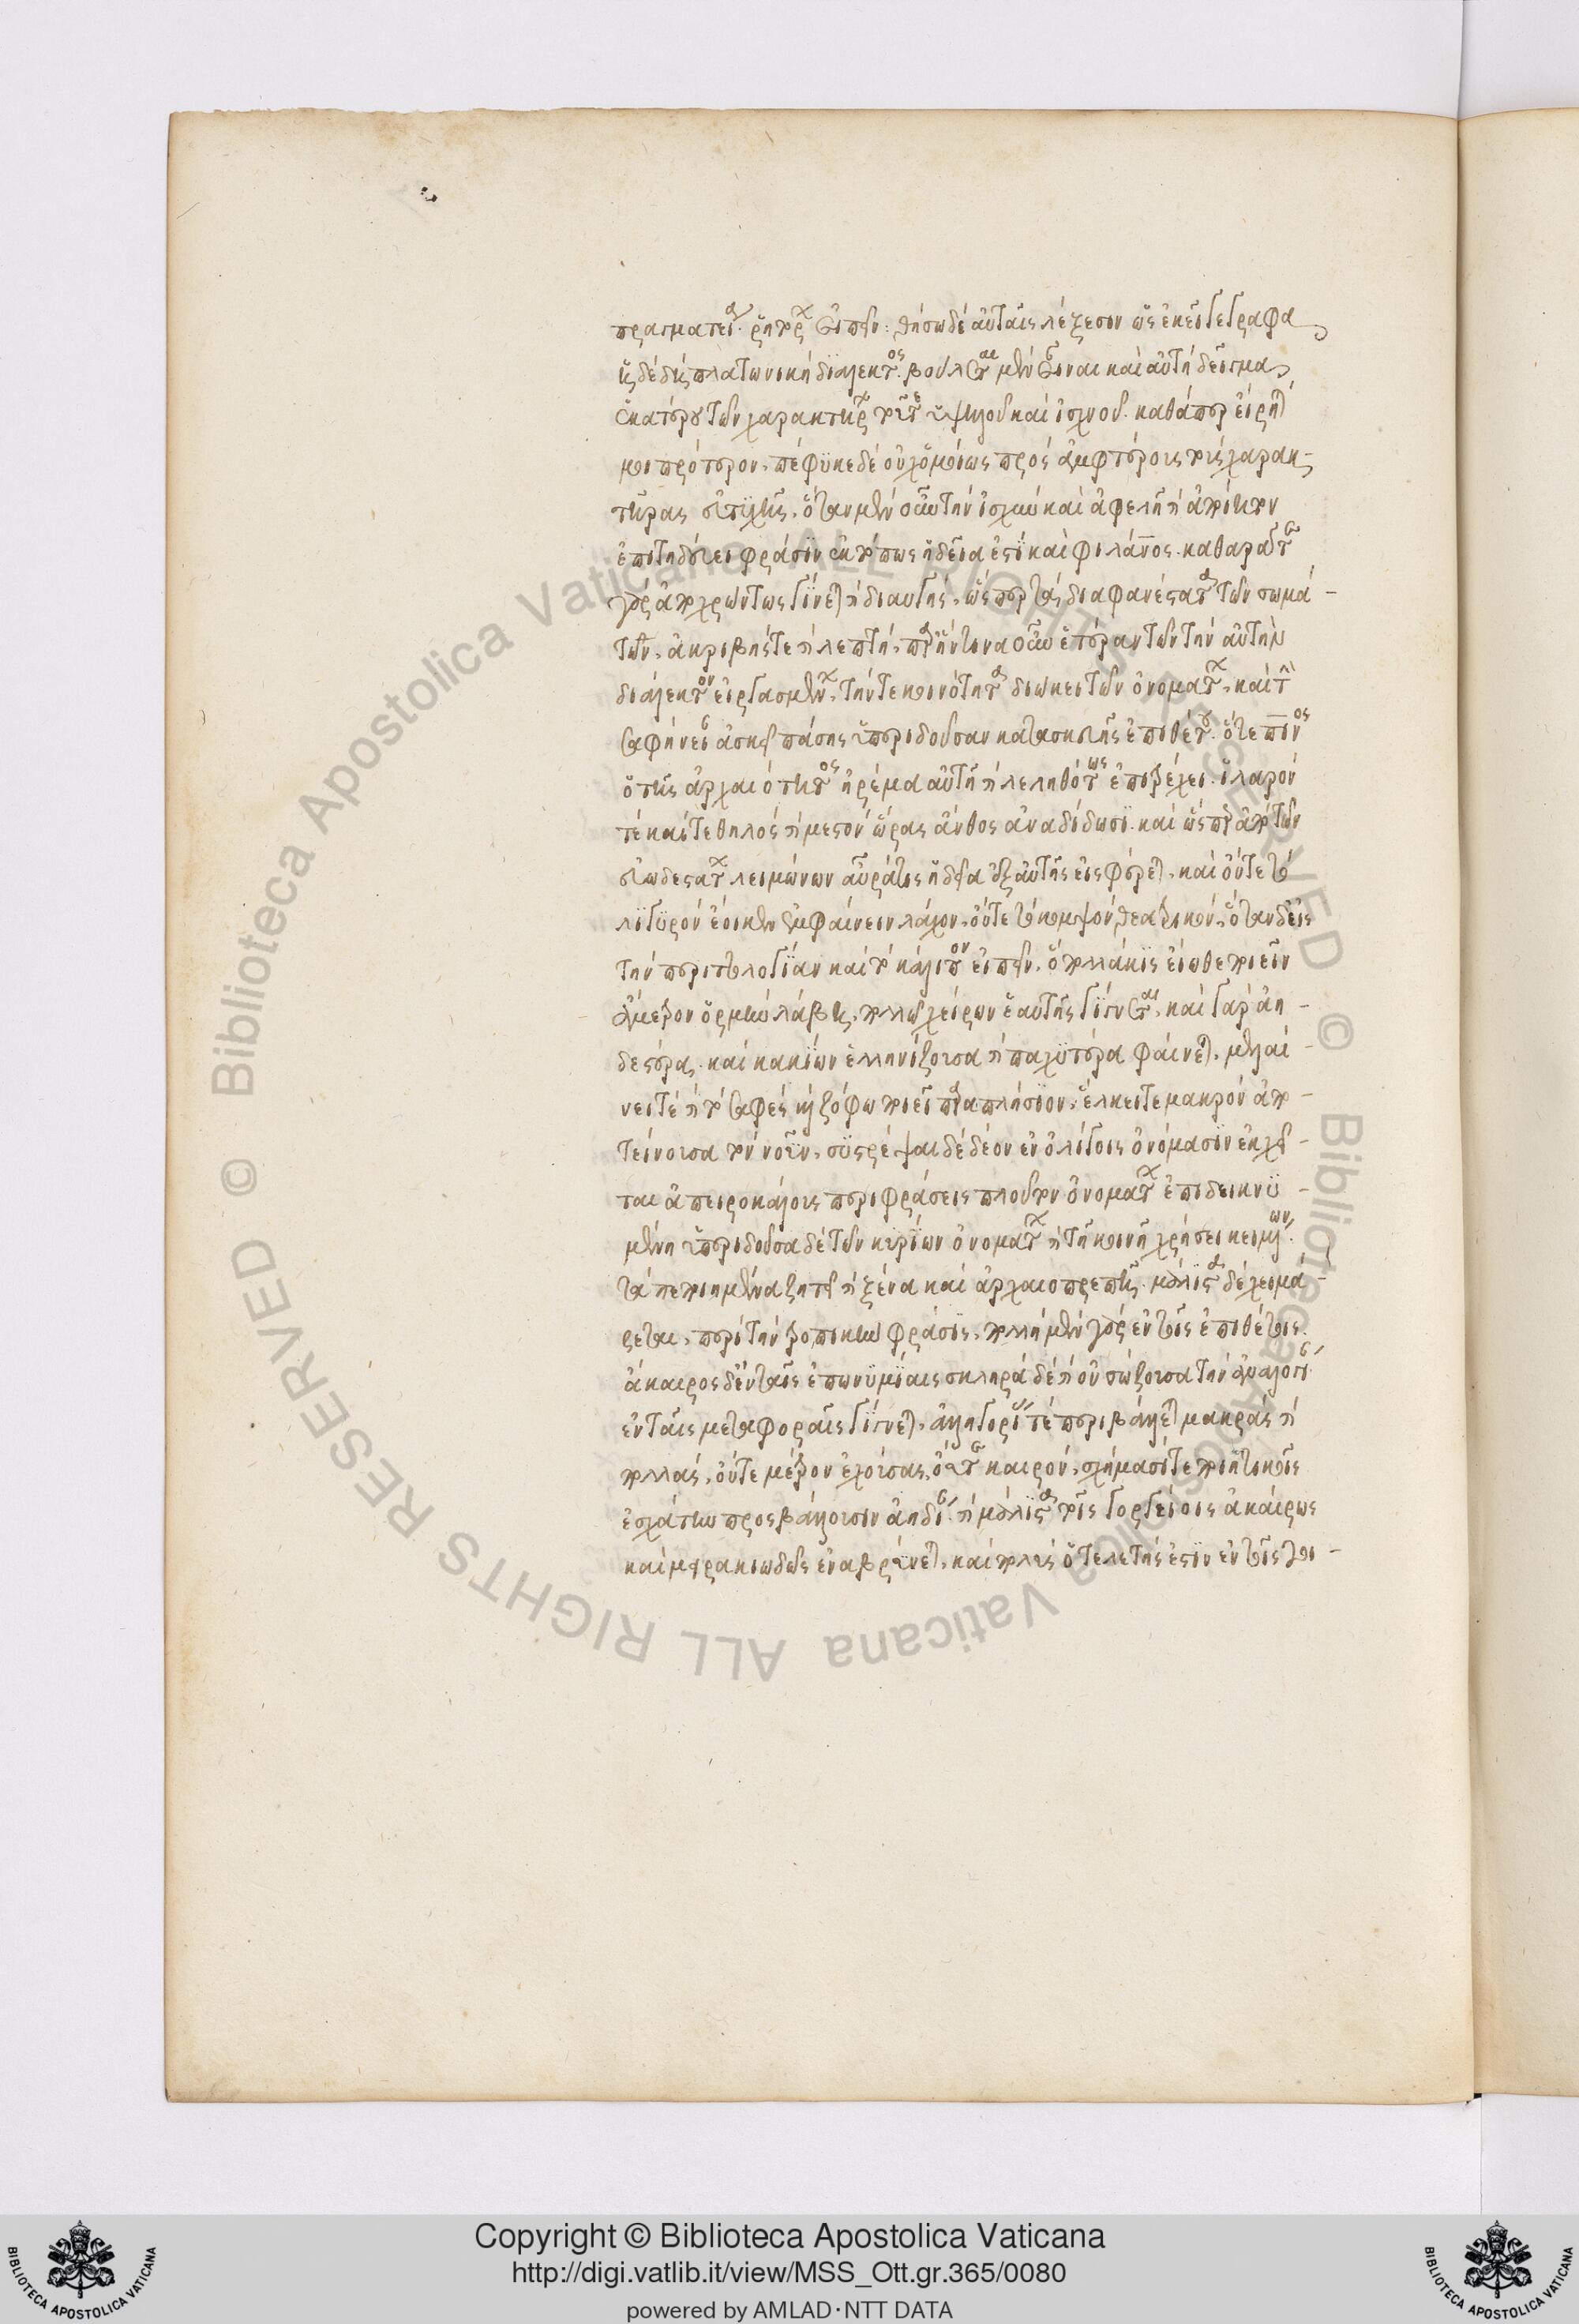 πραγματείας ῥητόρων εἰπεῖν: θήσω δὲ αὐταῖς λέξεσιν ὡς ἐκεῖ γέγραφα
ἡ δὲ δὴ πλατωνικὴ διάλεκτος βούλεται μὲν εἶναι καὶ αὐτὴ δεῖγμα
ἑκατέρου τῶν χαρακτήρων τοῦτε ὑψηλοῦ καὶ ἰσχνοῦ. καθάπερ εἴρηται
μοι πρότερον. πέφυκε δὲ οὐχ ὁμοίως πρὸς ἀμφοτέρους τοὺς χαρακ-
τῆρας εὐτυχής. ὅταν μὲν οὖν τὴν ἰσχνὴν καὶ ἀφελῆ καὶ ἀποίητον
ἐπιτηδεύει φράσιν ἐκτόπως ἡδεῖα ἐστὶ καὶ φιλάνθρωπος. καθαρὰ τε
γὰρ ἀποχρώντως γίνεται καὶ διαυγής. ὥσπερ τὰ διαφανέστατα τῶν σωμά-
των. ἀκριβής τε καὶ λεπτὴ παρ' ἥντινα οὖν ἑτέραν τῶν τὴν αὐτὴν
διάλεκτον εἰργασμένων. τήν τε κοινότητα διώκει τῶν ὀνομάτων. καὶ τὴν
σαφήνειαν ἀσκεῖ πάσης ὑπεριδοῦσαν κατασκευῆς ἐπιθέτου. ὅτε πίνος
ὁ τῆς ἀρχαιότητος ἠρέμα αὐτῇ καὶ λεληθότως ἐπιτρέχει. ἱλαρόν
τέ καί τεθηλὸς καὶ μεστὸν ὥρας ἄνθος ἀναδίδωσι. καὶ ὥσπερ ἀπὸ τῶν
εὐωδεστάτων λειμώνων αὖρά τις ἡδεῖα ἐξ αὐτῆς εἰσφέρεται. καὶ οὔτε τὸ
λιγυρὸν ἔοικεν ἐμφαίνειν λάλον. οὔτε τὸ κομψὸν θεατρικόν. ὅταν δὲ εἰς
τὴν περιττολογίαν καὶ τὸ κάλλιον εἰπεῖν. ὃ πολλάκις εἴωθε ποιεῖν
ἄμετρον ὁρμὴν λάβῃ. πολλῷ χείρων ἑαυτῆς γίγνεται. καὶ γὰρ ἀη-
δεστέρα. καὶ κακίων ἑλληνίζουσα καὶ παχυτέρα φαίνεται. μελαί-
νει τέ καὶ τὸ σαφές καὶ ζόφῳ ποιεῖ παραπλήσιον. ἕλκει τε μακρὸν ἀπο-
τείνουσα τὸν νοῦν. συστρέψαι δὲ δέον ἐν ὀλίγοις ὀνόμασιν ἐκχεῖ-
ται ἀπειροκάλους περιφράσεις πλοῦτον ὀνομάτων ἐπιδεικνυ-
μένη ὑπεριδοῦσα δὲ τῶν κυρίων ὀνομάτων καὶ τῇ κοινῇ χρήσει κειμένων.
τὰ πεποιημένα ζητεῖ καὶ ξένα καὶ ἀρχαιοπρεπῆ. μάλιστα δὲ χειμά-
ζεται. περὶ τὴν τροπικὴν φράσιν. πολλὴ μὲν γὰρ ἐν τοῖς ἐπιθέτοις.
ἄκαιρος δ' ἐν ταῖς ἐπωνυμίαις σκληρὰ δὲ καὶ οὐ σώζουσα τὴν ἀναλογίαν.
ἐν ταῖς μεταφοραῖς γίγνεται. ἀλληγορίας τὲ περιβάλλεται μακρὰς καὶ
πολλάς. οὔτε μέτρον ἐχούσας, οὔτε καιρόν. σχήμασί τε ποιητικοῖς
ἐσχάτην προσβάλλουσιν ἀηδίαν. καὶ μάλιστα τοῖς γοργιείοις ἀκαίρως
καὶ μειρακιωδῶς ἐναβρύνεται. καὶ πολὺς ὁ τελετής ἐστιν ἐν τοῖς τοι-